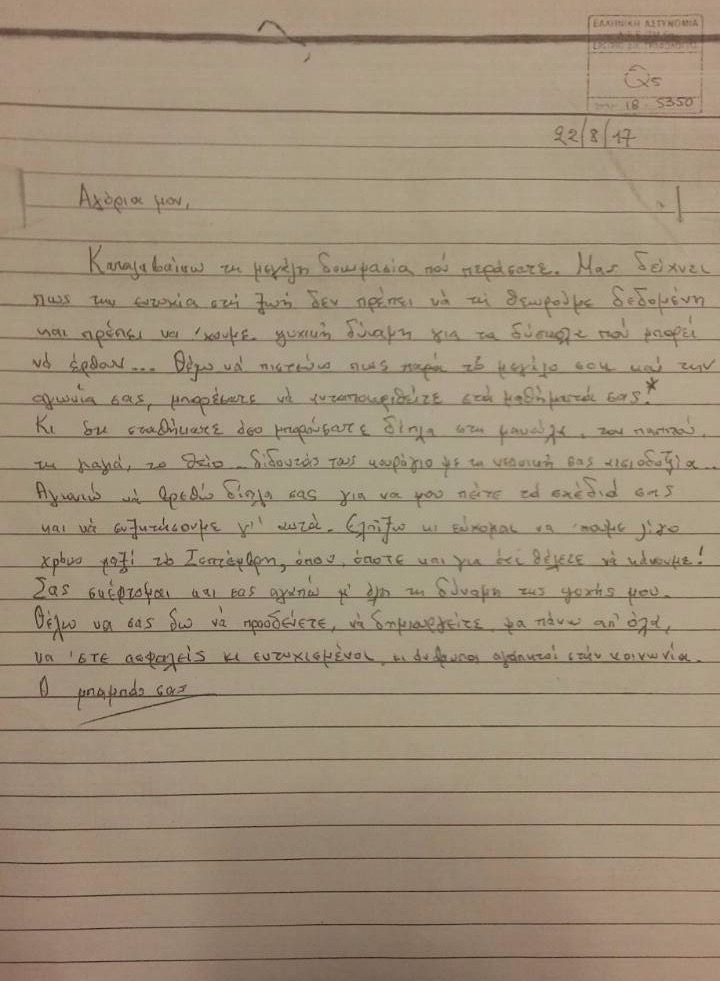 ΕΛΛΗΝΙΚΗ ΑΣΤΥΝΟΜΙΑ
Q5
18 5350
22/8/17
Αγόρια μου,
Καταλαβαίνω τη μεγάλη δοκιμασία πού περάσατε. Μας δείχνει
πως την ευτυχία στή ζωή δεν πρέπει νά τή θεωρούμε δεδομένη
και πρέπει να 'χουμε ψυχική δύναμη για τα δύσκολα πού μπορεί
νά έρθουν... Θέλω νά πιστεύω πως παρά τό μεγάλο σοκ καί την
αγωνία σας, μπορέσατε νά ανταποκριθείτε στά μαθήματά σας.*
Κι αν σταθήκατε όσο μπορούσατε δίπλα στη μανούλα, τον παππού,
τη γιαγιά, το θείο... δίδοντάς τους κουράγιο με τη νεανική σας αισιοδοξία...
Αγωνιώ νά βρεθώ δίπλα σας για να μου πείτε τά σχέδιά σας
και νά συζητήσουμε γι' αυτά. Ελπίζω κι εύχομαι να 'χουμε λίγο
χρόνο μαζί τό Σεπτέμβρη, όπου, όποτε και για ό,τι θέλετε νά κάνουμε!
Σάς σκέφτομαι και σας αγαπώ μ' όλη τη δύναμη της ψυχής μου.
Θέλω να σας δω νά προοδεύετε, νά δημιουργείτε, μα πάνω απ' όλα,
να 'στε ασφαλείς κι ευτυχισμένοι, κι άνθρωποι αγαπητοί στήν κοινωνία.
Ο μπαμπάς σας